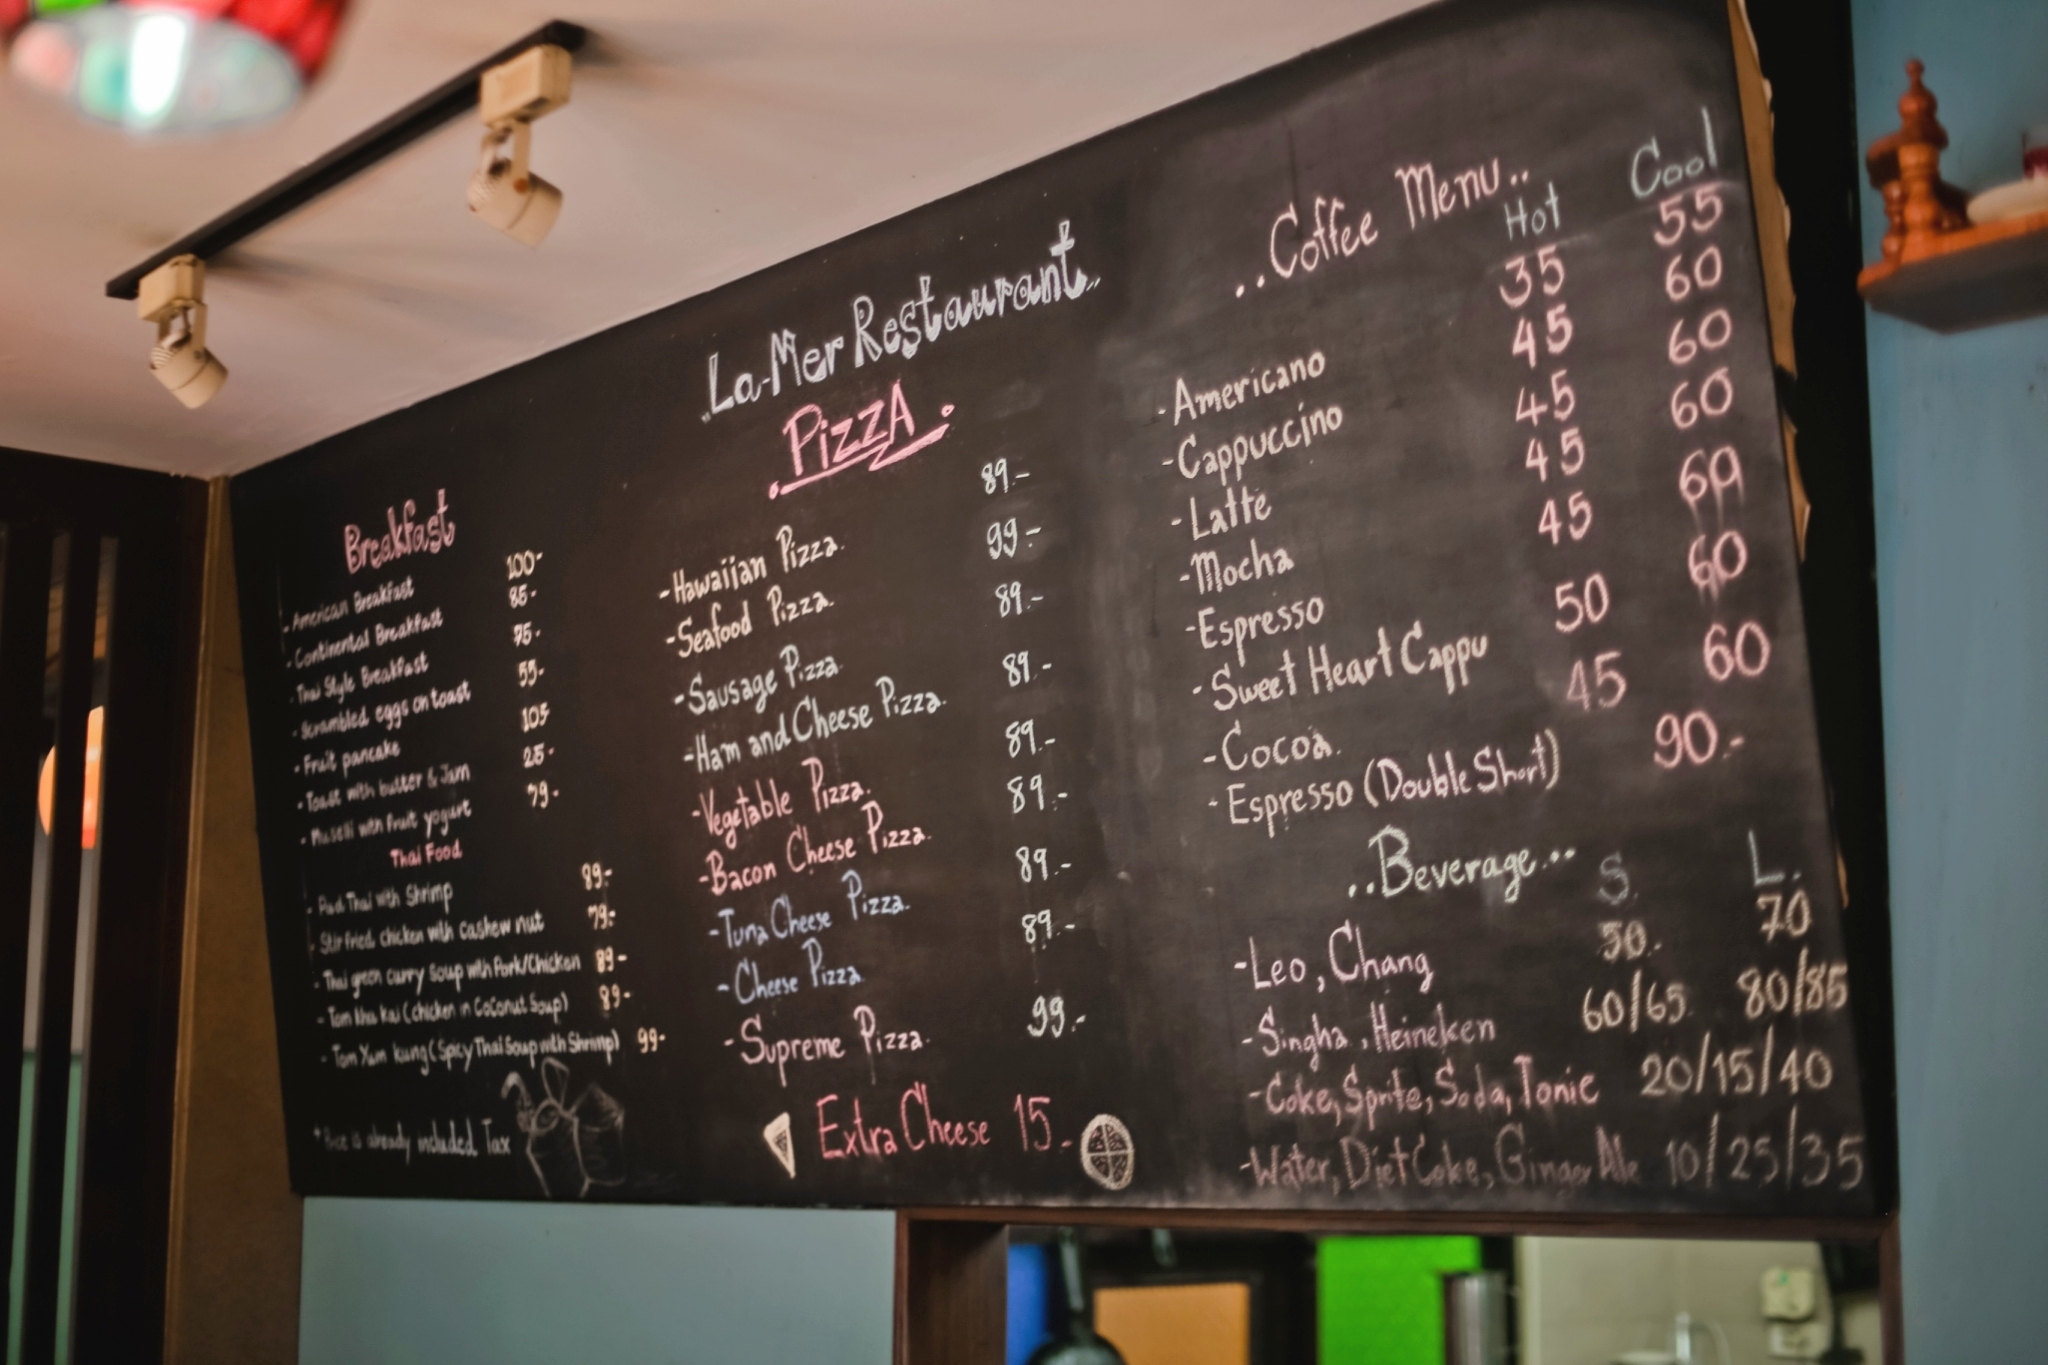 ..La-Mer Restaurant..
Breakfast
- American Breakfast 100-
- Continental Breakfast 85-
- Thai Style Breakfast 75-
- Scrambled eggs on toast 55-
- Fruit pancake 105
- Toast with butter & Jam 25-
- Muselli with fruit yogurt 79-
Thai Food
- Pad Thai with Shrimp 89-
- Stir fried chicken with cashew nut 79-
- Thai green curry soup with Pork/Chicken 89-
- Tom kha kai (chicken in Coconut Soup) 89-
- Tom Yum kung (Spicy Thai Soup with Shrimp) 99-
* Price is already included Tax
PizzA
- Hawaiian Pizza. 89.-
- Seafood Pizza. 99.-
- Sausage Pizza. 89.-
- Ham and Cheese Pizza. 89.-
- Vegetable Pizza. 89.-
- Bacon Cheese Pizza. 89.-
- Tuna Cheese Pizza. 89.-
- Cheese Pizza 89.-
- Supreme Pizza. 99.-
Extra Cheese 15.-
..Coffee Menu..
Hot Cool
- Americano 35 55
- Cappuccino 45 60
- Latte 45 60
- Mocha 45 60
- Espresso 45 60
- Sweet Heart Cappu 50 60
- Cocoa. 45 60
- Espresso (Double Short) 90.-
..Beverage..
S. L.
- Leo, Chang 50.- 70
- Singha, Heineken 60/65 80/85
- Coke, Sprite, Soda, Tonic 20/15/40
- Water, Diet Coke, Ginger Ale 10/25/35